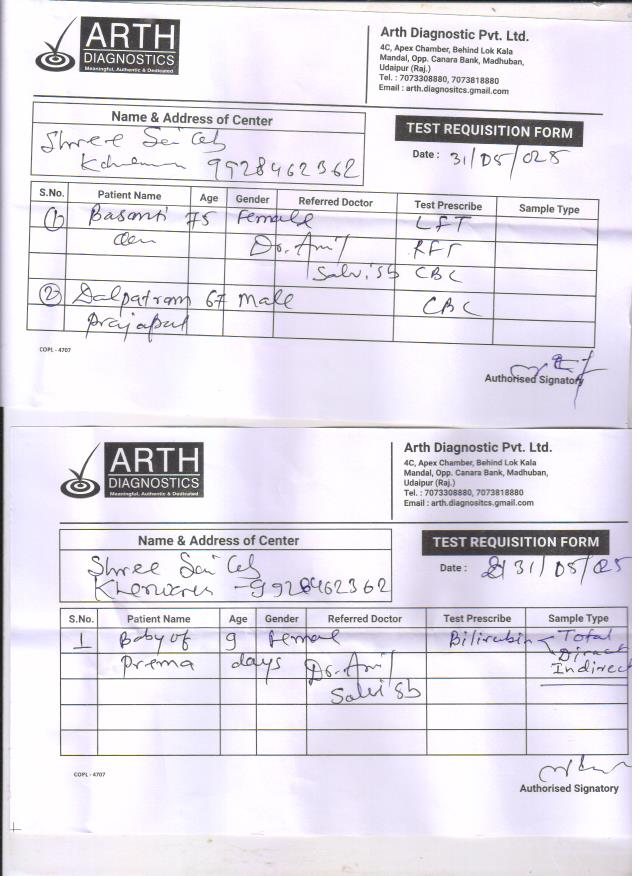 ARTH
DIAGNOSTICS
Meaningful, Authentic & Dedicated
Arth Diagnostic Pvt. Ltd.
4C, Apex Chamber, Behind Lok Kala
Mandal, Opp. Canara Bank, Madhuban,
Udaipur (Raj.)
Tel. : 7073308880, 7073818880
Email : arth.diagnositcs.gmail.com
Name & Address of Center
TEST REQUISITION FORM
Shree Sai
9928462362
Date : 31/05/025
S.No. Patient Name Age Gender Referred Doctor Test Prescribe Sample Type
1 Basanti 75 Female LFT
Dr. Amit RFT
Salvi Sb CBC
2 Dalpatram 67 male CBC
Prajapat
COPL - 4707
Authorised Signatory
ARTH
DIAGNOSTICS
Meaningful, Authentic & Dedicated
Arth Diagnostic Pvt. Ltd.
4C, Apex Chamber, Behind Lok Kala
Mandal, Opp. Canara Bank, Madhuban,
Udaipur (Raj.)
Tel. : 7073308880, 7073818880
Email : arth.diagnositcs.gmail.com
Name & Address of Center
TEST REQUISITION FORM
Shree Sai
9928462362
Date : 31/05/025
S.No. Patient Name Age Gender Referred Doctor Test Prescribe Sample Type
1 Baby of 9 Female Bilirubin Total
Prema days Dr. Amit Direct
Salvi Sb Indirect
COPL - 4707
Authorised Signatory